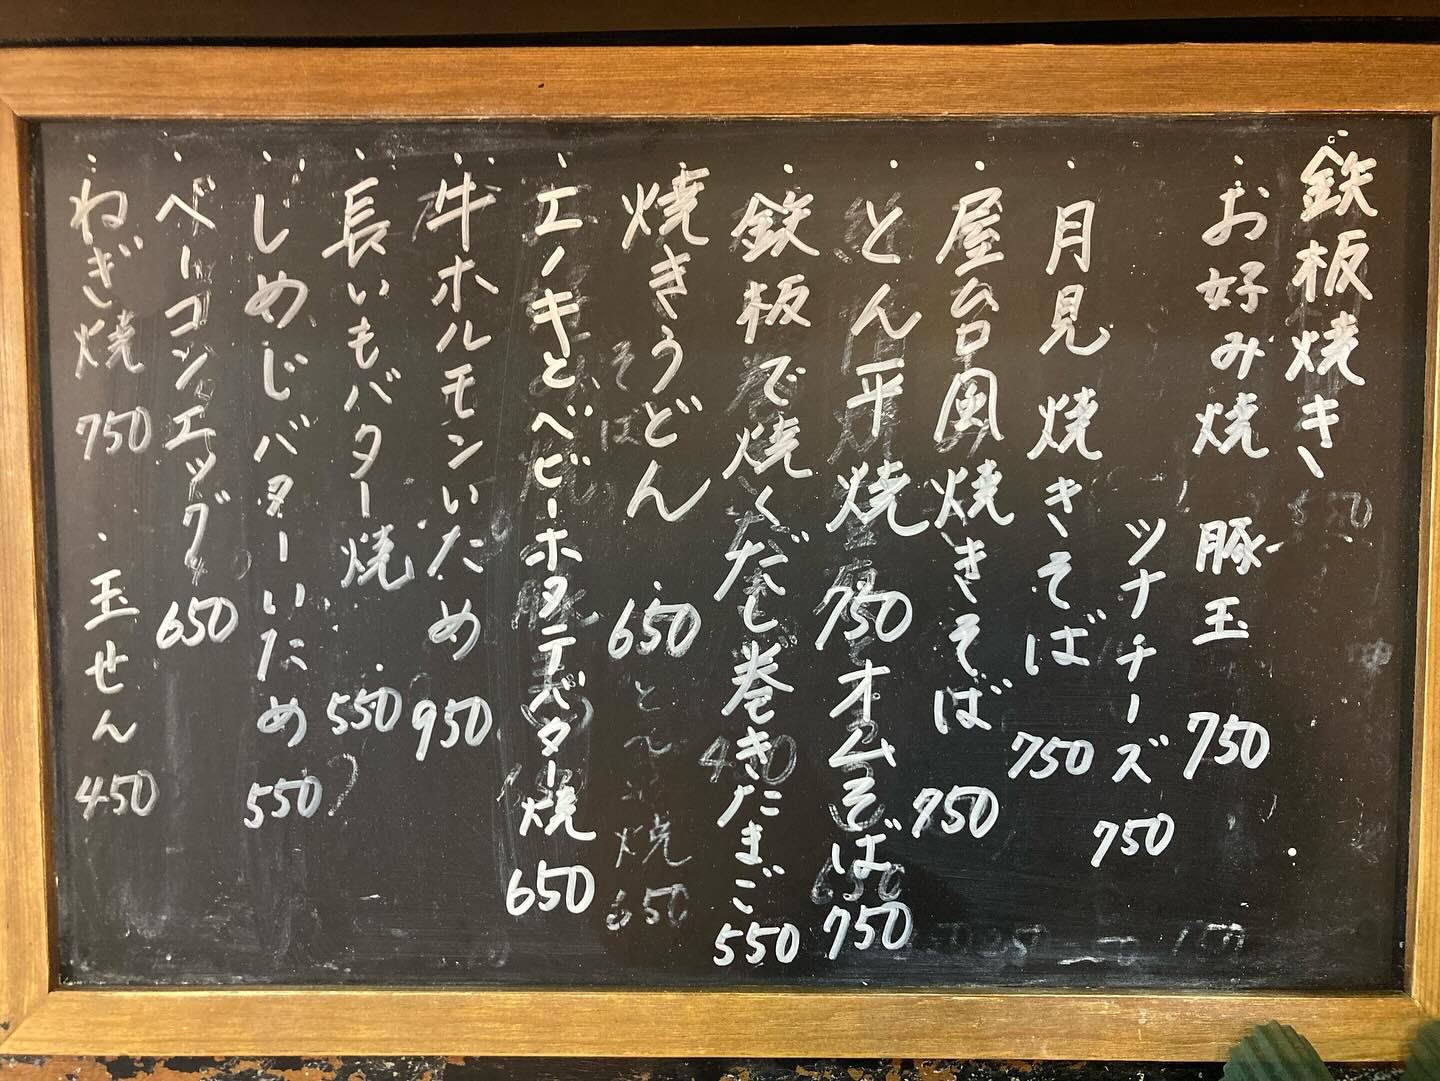 ・鉄板焼き
・お好み焼 豚玉 750
ツナチーズ 750
・月見焼きそば 750
・屋台風焼きそば 950
・とん平焼 750 オムそば 750
・鉄板で焼くだし巻きたまご 550
・焼きうどん 650
・エノキとベビーホタテバター焼 650
・牛ホルモンいため 950
・長いもバター焼 550
・しめじバターいため 550
・ベーコンエッグ 650
・ねぎ焼 750 ・玉せん 450